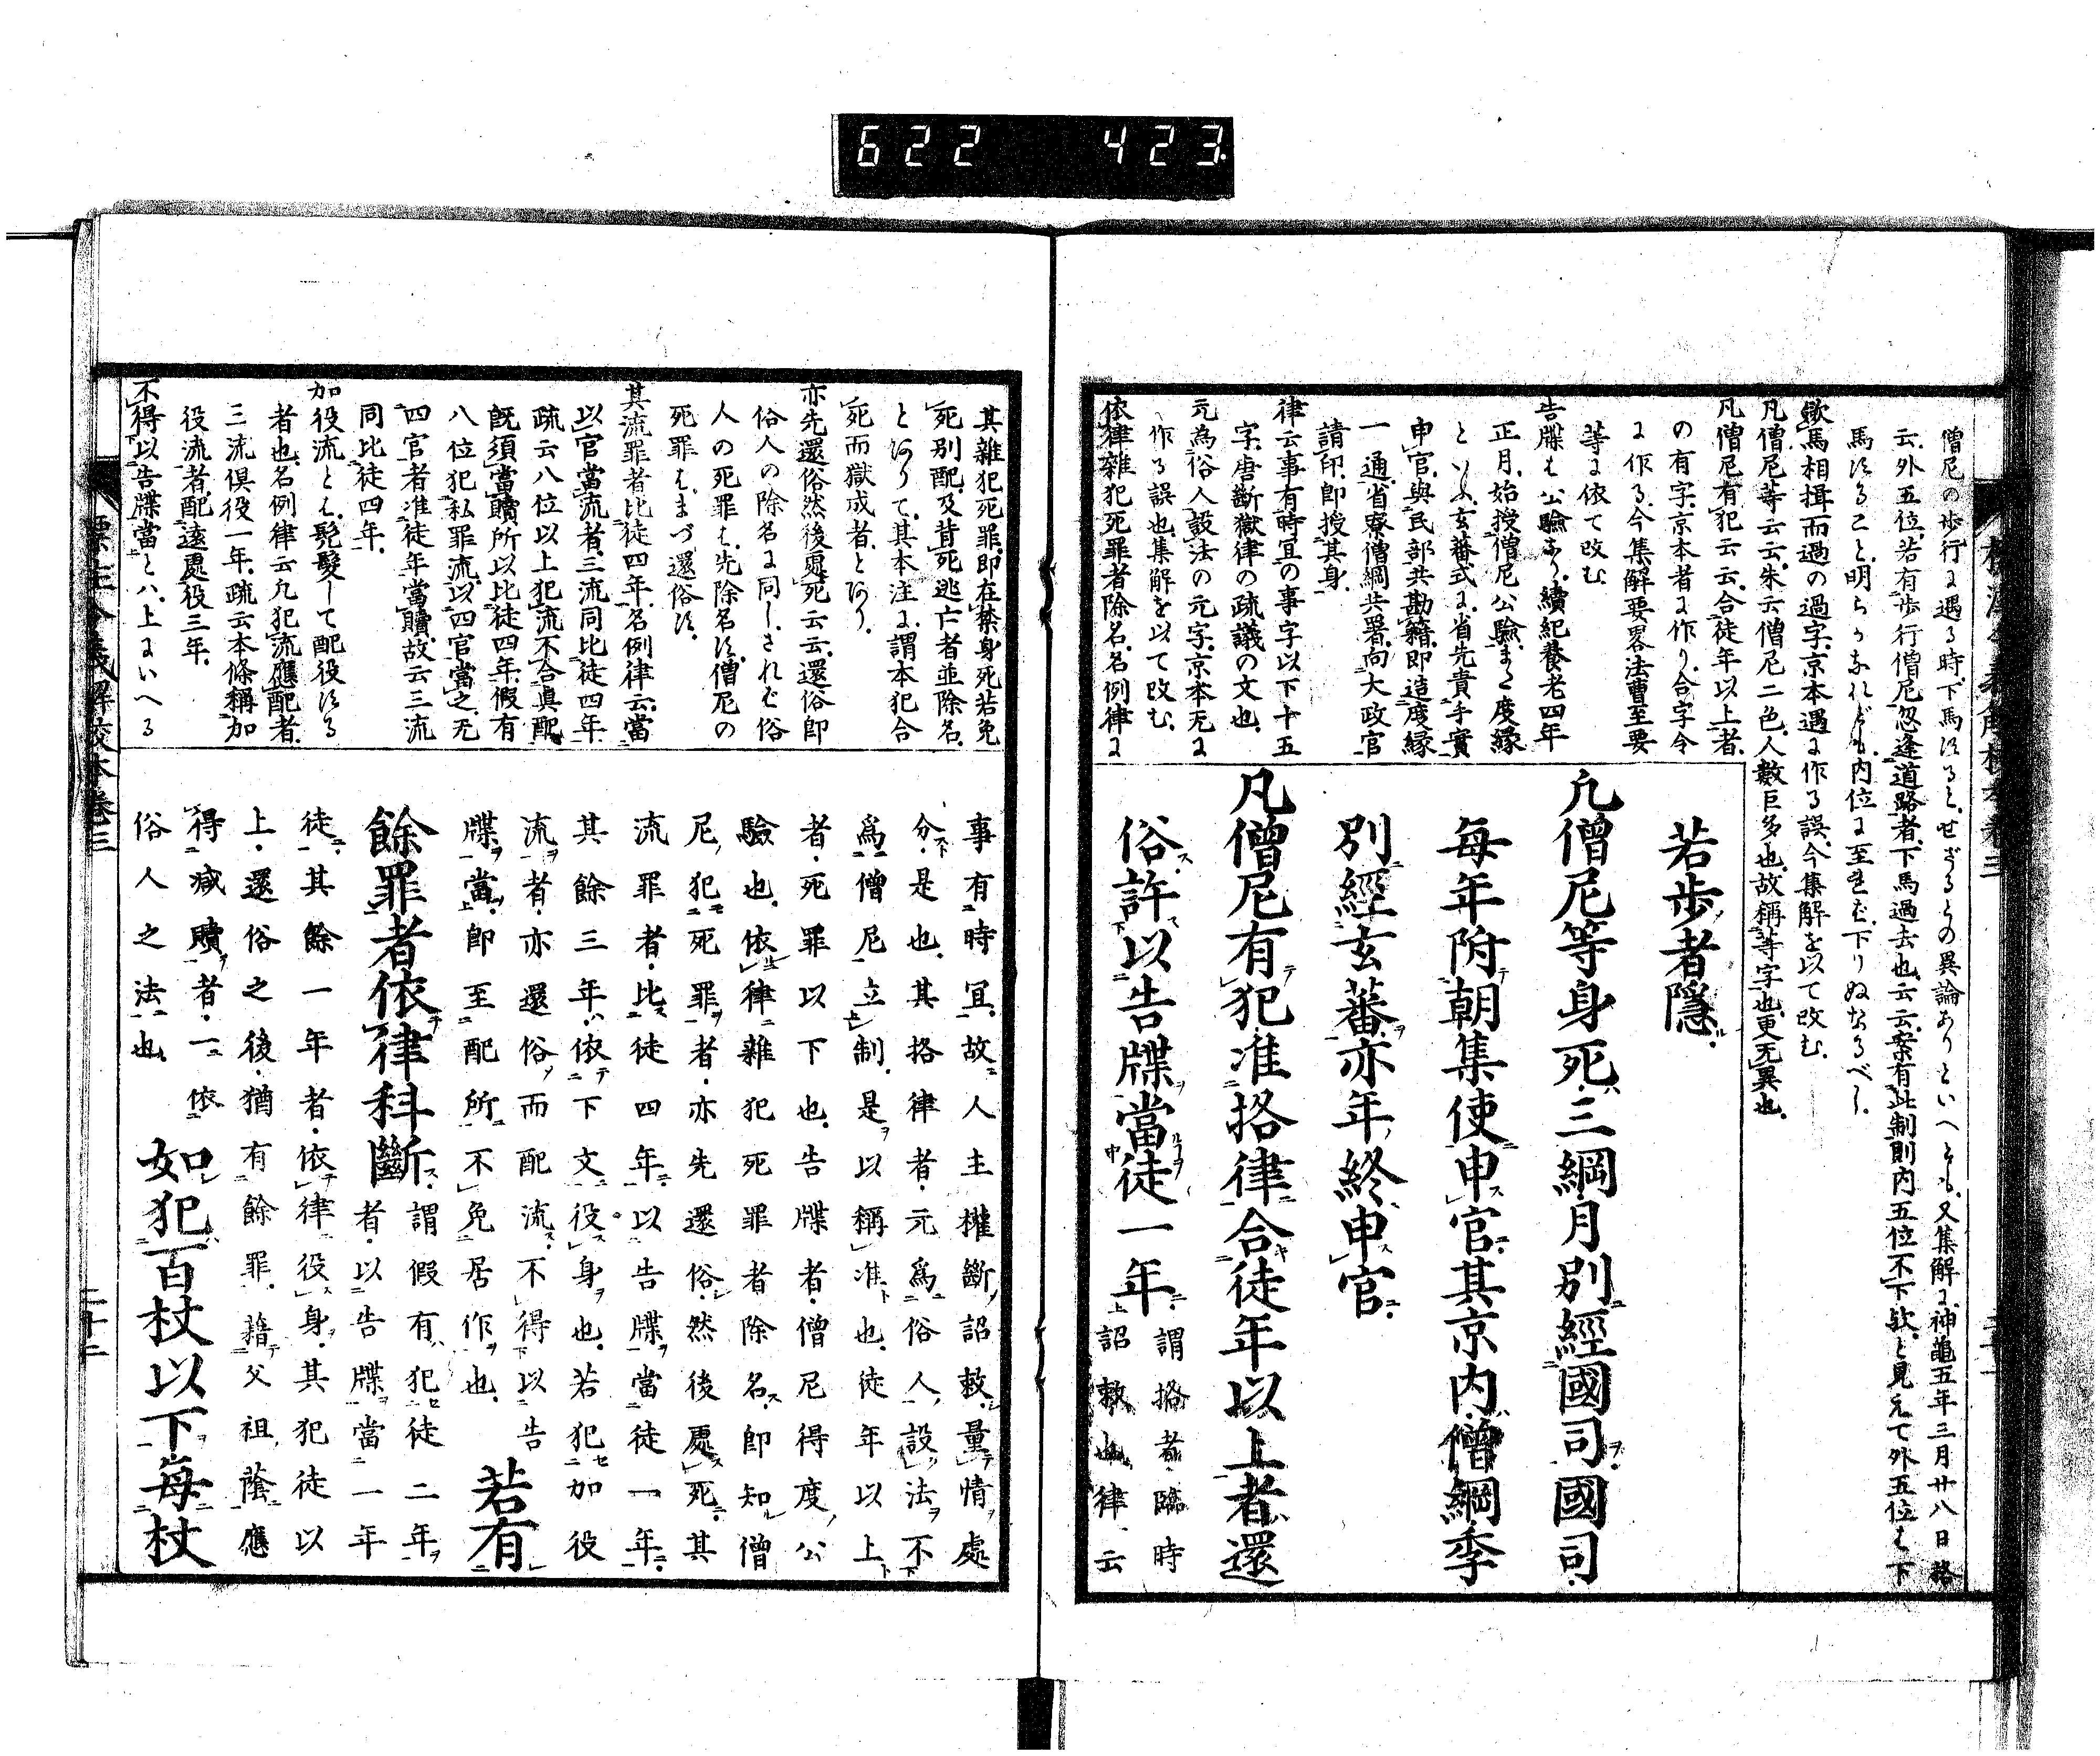 622 423
僧尼の歩行に遇る時、下馬するとせざるとの異論ありといへども、又集解に、神龜五年三月廿八日格
云、外五位、若有歩行僧尼忽逢道路者、下馬過去也、云云、案有此制則内五位不下歟、と見えて外五位は下
馬すること、明らかなれども、内位に至まで下りぬなるべし
歟馬相揖而過の過字、京本遇に作る誤、今集解を以て改む
凡僧尼等云云、朱云僧尼二色、人數巨多也、故稱等字也、更无異也、
凡僧尼有犯云云、合徒年以上者、
の有字、京本者に作り、合字令
に作る、今集解要畧法曹至要
等に依て改む
告牒は公驗なり、續紀養老四年
正月、始授僧尼公驗、また度縁
といふ、玄蕃式に、省先責手實
申官、與民部共勘籍、即造度縁
一通、省寮僧綱共署、向大政官
請印、即授其身、
律云事有時宜の事字以下十五
字、唐斷獄律の疏議の文也、
元為俗人設法の元字、京本无に
作る誤也、集解を以て改む、
依律雜犯死罪者除名、名例律に
若歩者隱
凡僧尼等身死三綱月別經國司國司
每年附朝集使申官其京内僧綱季
別經玄蕃亦年終申官
凡僧尼有犯准格律合徒年以上者還
俗許以告牒當徒一年 謂格者臨時
詔敕也律云
其雜犯死罪、即在禁身死、若免
死別配、及背死逃亡者、並除名、
とありて、其本注に、謂本犯合
死而獄成者、とあり、
亦先還俗然後處死云云、還俗即
俗人の除名に同し、されど俗
人の死罪は、先除名す、僧尼の
死罪は、まづ還俗す、
其流罪者比徒四年、名例律云、當
以官當流者、三流同比徒四年、
疏云八位以上犯流不合眞配、
既須當贖、所以比徒四年、假有
八位犯私罪流、以四官當之、无
四官者、准徒年當贖、故云三流
同比徒四年、
加役流とは、髡髮して配役する
者也、名例律云凡犯流應配者、
三流倶役一年、疏云本條稱加
役流者、配遠處役三年、
不得以告牒當とハ、上にいへる
事有時宜故人主權斷詔敕量情處
分是也其格律者元爲俗人設法不
爲僧尼立制是以稱准也徒年以上
者死罪以下也告牒者僧尼得度公
驗也依律雜犯死罪者除名即知僧
尼犯死罪者亦先還俗然後處死其
流罪者比徒四年以告牒當徒一年
其餘三年依下文役身也若犯加役
流者亦還俗而配流不得以告
牒當即至配所不免居作也 若有
餘罪者依律科斷 謂假有犯徒二年
者以告牒當一年
徒其餘一年者依律役身其犯徒以
上還俗之後猶有餘罪藉父祖蔭應
得減贖者一依
俗人之法也 如犯百杖以下每杖
標注令義解校本卷三
二十二